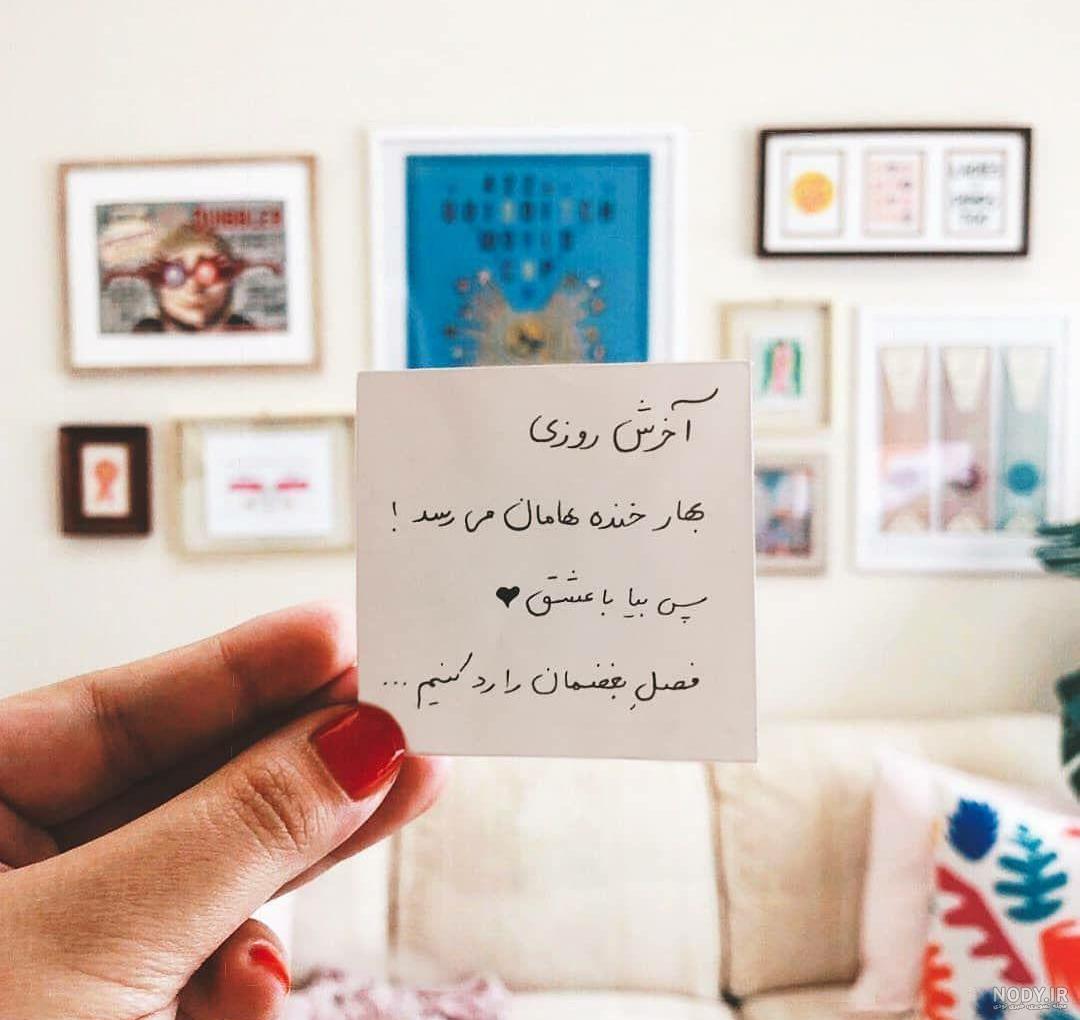 QUIBBLER
QUIDDITCH
WORLD
CUP
آخرش روزی
بهار خنده هامان می رسد !
پس بیا با عشق ♥
فصلِ بغضمان را رد کنیم ...
NODY.IR